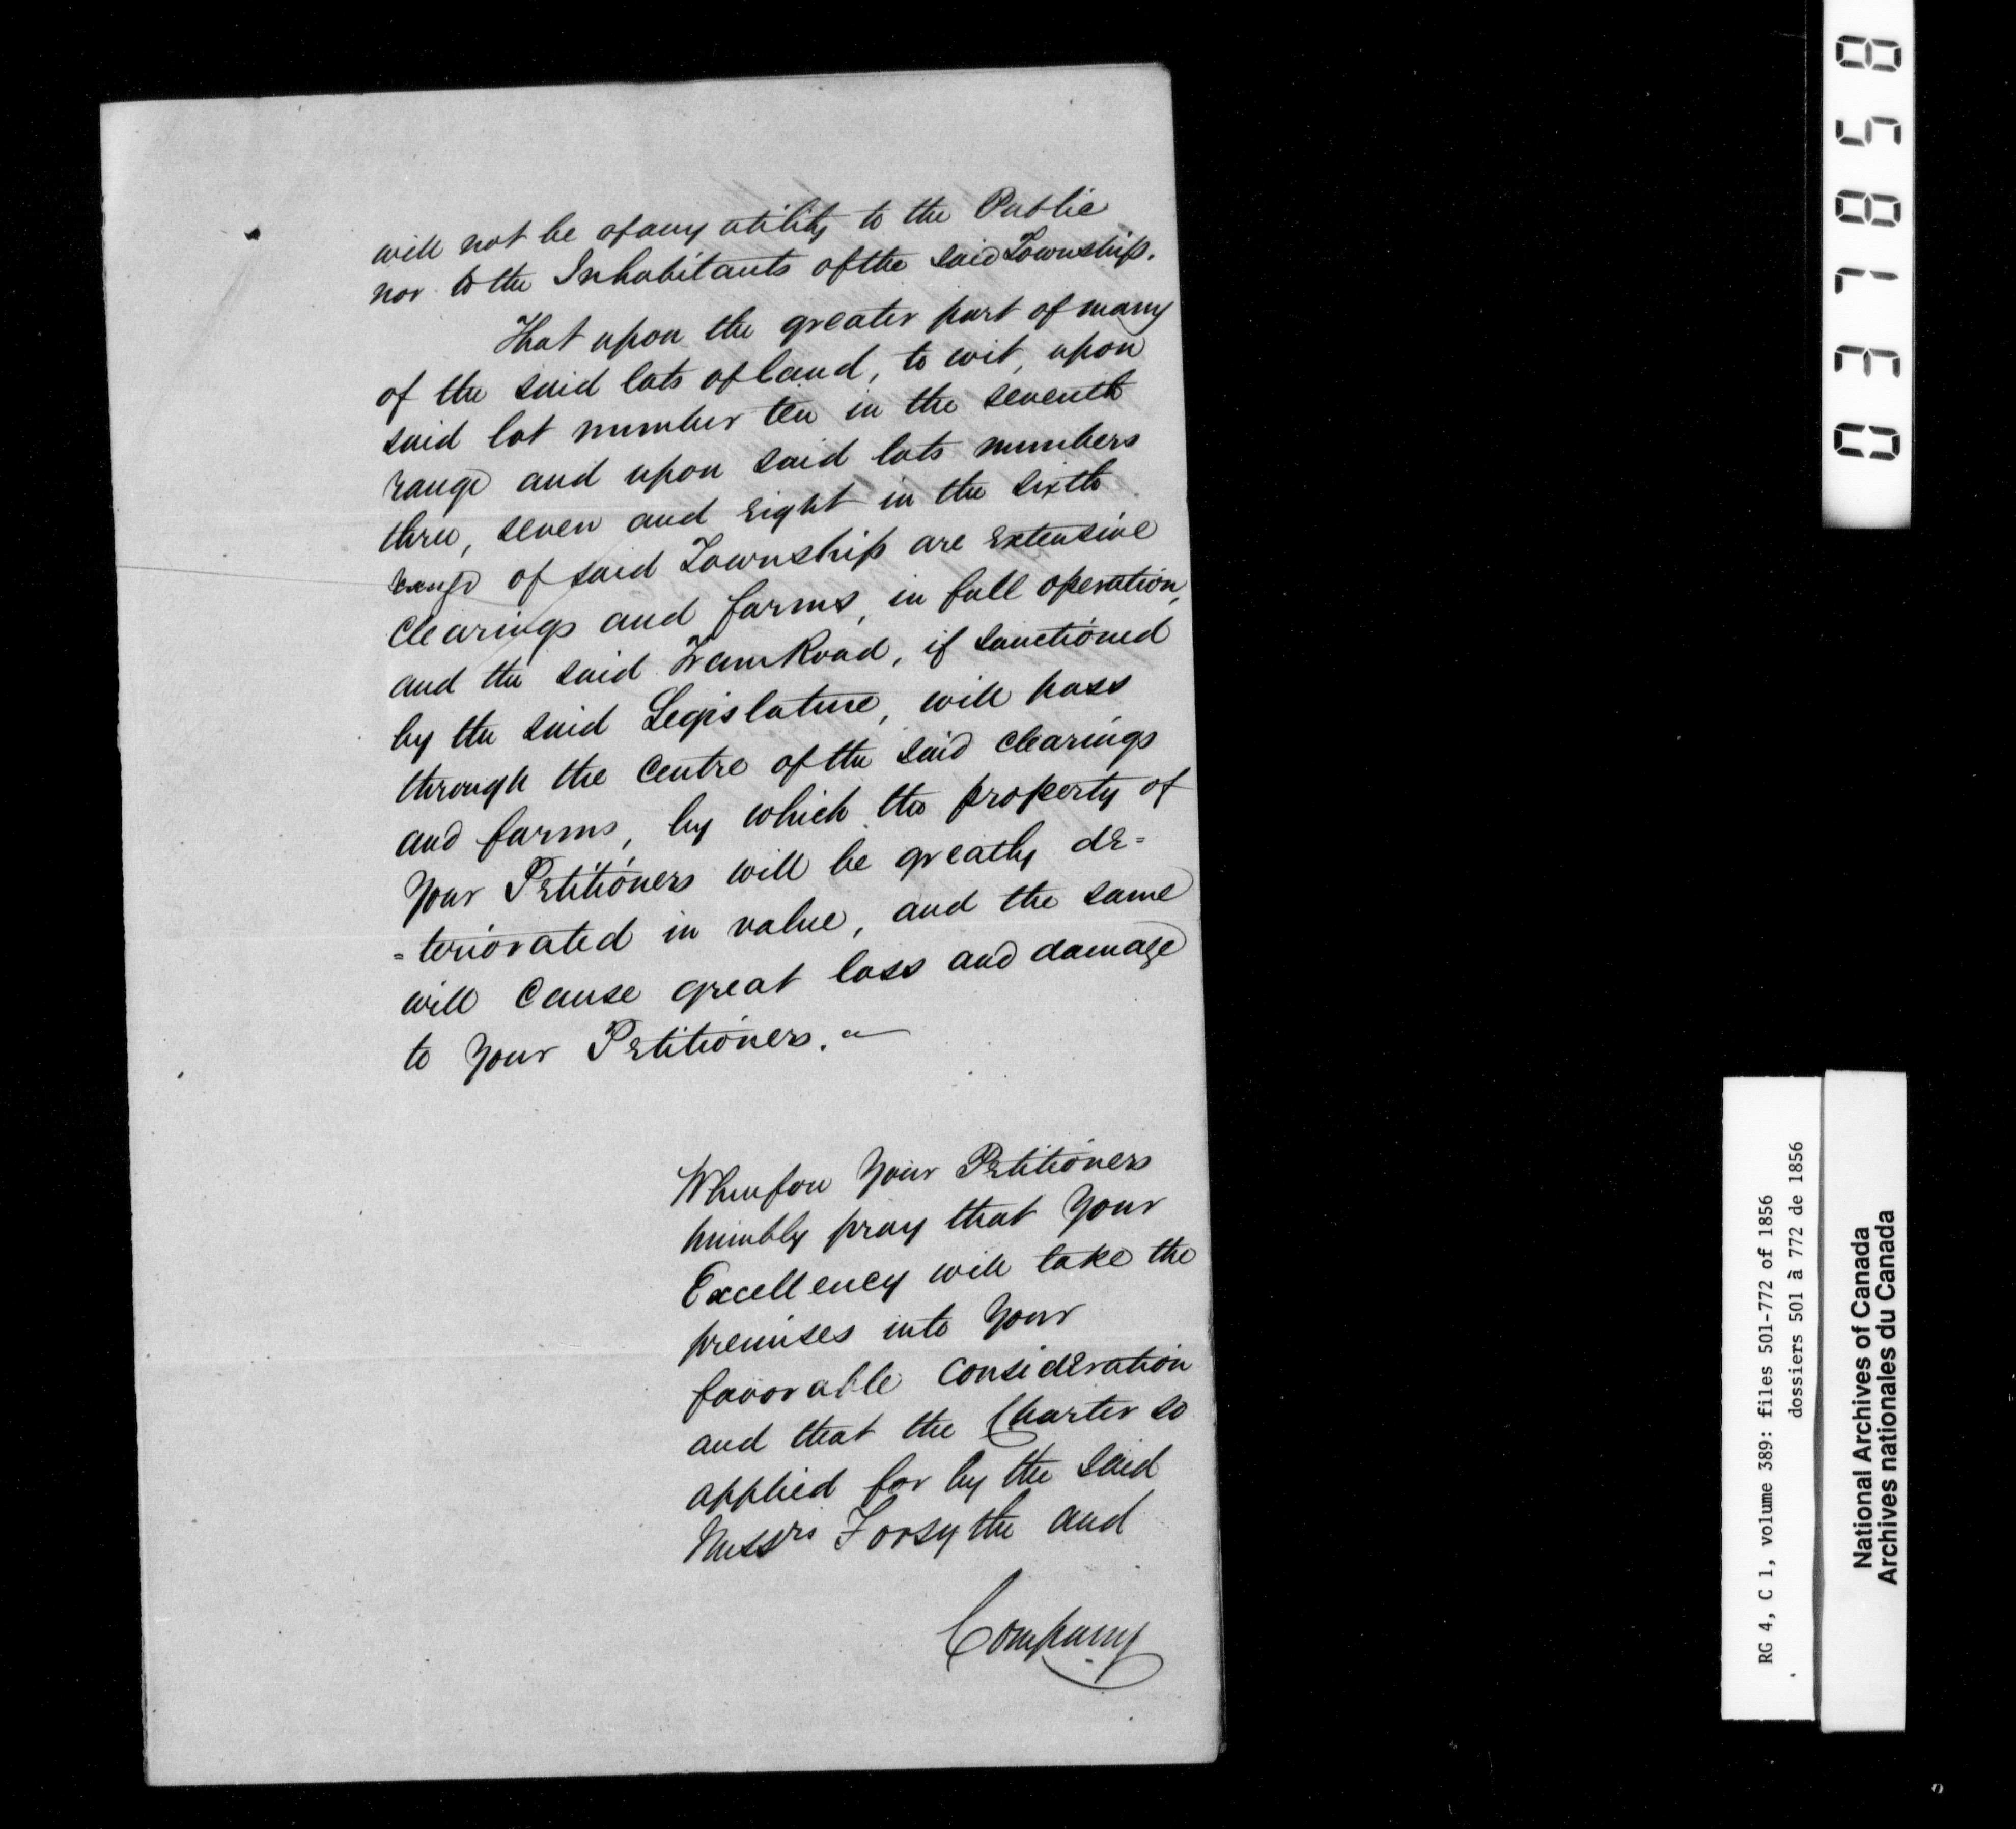 will not be of any utility to the Public
nor to the Inhabitants of the said Township.
That upon the greater part of many
of the said lots of land, to wit, upon
said lot number ten in the seventh
range and upon said lots numbers
three, seven and eight in the sixth
range of said Township are extensive
clearings and farms, in full operation,
and the said Tram Road, if sanctioned
by the said Legislature, will pass
through the centre of the said clearings
and farms, by which the property of
Your Petitioners will be greatly de=
=teriorated in value, and the same
will cause great loss and damage
to Your Petitioners.
Wherefore Your Petitioners
humbly pray that Your
Excellency will take the
premises into Your
favorable consideration
and that the Charter so
applied for by the said
Messrs Forsythe and
Company
037858
RG 4, C 1, volume 389: files 501-772 of 1856
dossiers 501 à 772 de 1856
National Archives of Canada
Archives nationales du Canada